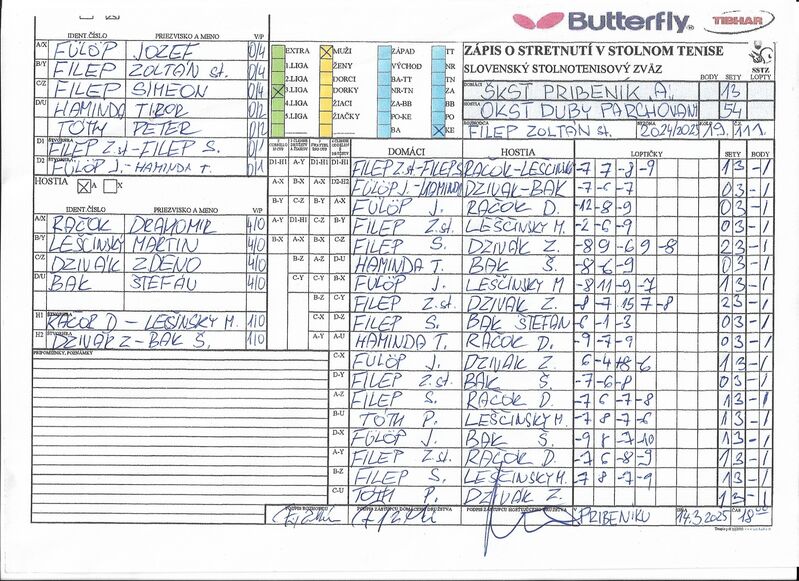 Butterfly
TIBHAR
IDENT.ČÍSLO PRIEZVISKO A MENO V/P
A/X FÜLÖP JOZEF 0/4
B/Y FILEP ZOLTÁN st. 0/4
C/Z FILEP SIMEON 0/4
D/U HAMINDA TIBOR 0/2
TÓTH PETER 0/2
D1 FILEP Z.st - FILEP S. 0/1
D2 FÜLÖP J. - HAMINDA T. 0/1
HOSTIA A X
IDENT.ČÍSLO PRIEZVISKO A MENO V/P
A/X RAČOK DRAHOMIR 4/0
B/Y LEŠČINSKY MARTIN 4/0
C/Z DZIVAK ZDENO 4/0
D/U BAK ŠTEFAN 4/0
H1 RAČOK D - LEŠČINSKY M. 1/0
H2 DZIVAK Z - BAK Š. 1/0
PRIPOMIENKY, POZNÁMKY
EXTRA MUŽI ZÁPAD TT
1.LIGA ŽENY VÝCHOD NR
2.LIGA DORCI BA-TT TN
3.LIGA DORKY NR-TN ZA
4.LIGA ŽIACI ZA-BB BB
5.LIGA ŽIAČKY PO-KE PO
BA KE
ZÁPIS O STRETNUTÍ V STOLNOM TENISE
SLOVENSKÝ STOLNOTENISOVÝ ZVÄZ
SSTZ
BODY SETY LOPTY
DOMÁCI ŠKST PRIBENÍK A. 13
HOSTIA OKST DUBY PARCHOVANY 54
FILEP ZOLTÁN st. SEZONA 2024/2025 KOLO 19.
DOMÁCI HOSTIA LOPTIČKY SETY BODY
D1-H1 FILEP Z.st-FILEP S RAČOK-LEŠČINSKY -7 7 -8 -9 13 -1
D2-H2 FÜLÖP J.-HAMINDA DZIVAK-BAK -7 -6 -7 03 -1
A-X FÜLÖP J. RAČOK D. -12 -8 -9 03 -1
B-Y FILEP Z.st. LEŠČINSKY M. -2 -6 -9 03 -1
C-Z FILEP S. DZIVAK Z. -8 9 -6 9 -8 23 -1
D-U HAMINDA T. BAK Š. -8 -6 -9 03 -1
B-X FÜLÖP J. LEŠČINSKY M -8 11 -9 -7 13 -1
C-Y FILEP Z.st. DZIVAK Z. -8 -7 15 7 -8 23 -1
D-Z FILEP S. BAK ŠTEFAN -6 -1 -3 03 -1
A-U HAMINDA T. RAČOK D. -9 -7 -9 03 -1
C-X FÜLÖP J. DZIVAK Z. 6 -4 -6 13 -1
D-Y FILEP Z.st. BAK Š. -7 -6 -8 03 -1
A-Z FILEP S. RAČOK D. -7 6 -7 -8 13 -1
B-U TÓTH P. LEŠČINSKY M. -7 8 -7 -6 13 -1
D-X FÜLÖP J. BAK Š. -9 8 -7 -10 13 -1
A-Y FILEP Z.st. RAČOK D. -7 6 -8 -9 13 -1
B-Z FILEP S. LEŠČINSKY M. -7 8 -7 -9 13 -1
C-U TÓTH P. DZIVAK Z. 13 -1
PODPIS ROZHODCU PODPIS ZÁSTUPCU DOMÁCEHO DRUŽSTVA PODPIS ZÁSTUPCU HOSŤUJÚCEHO DRUŽSTVA V PRIBENÍKU DŇA 14.3.2025 18 00